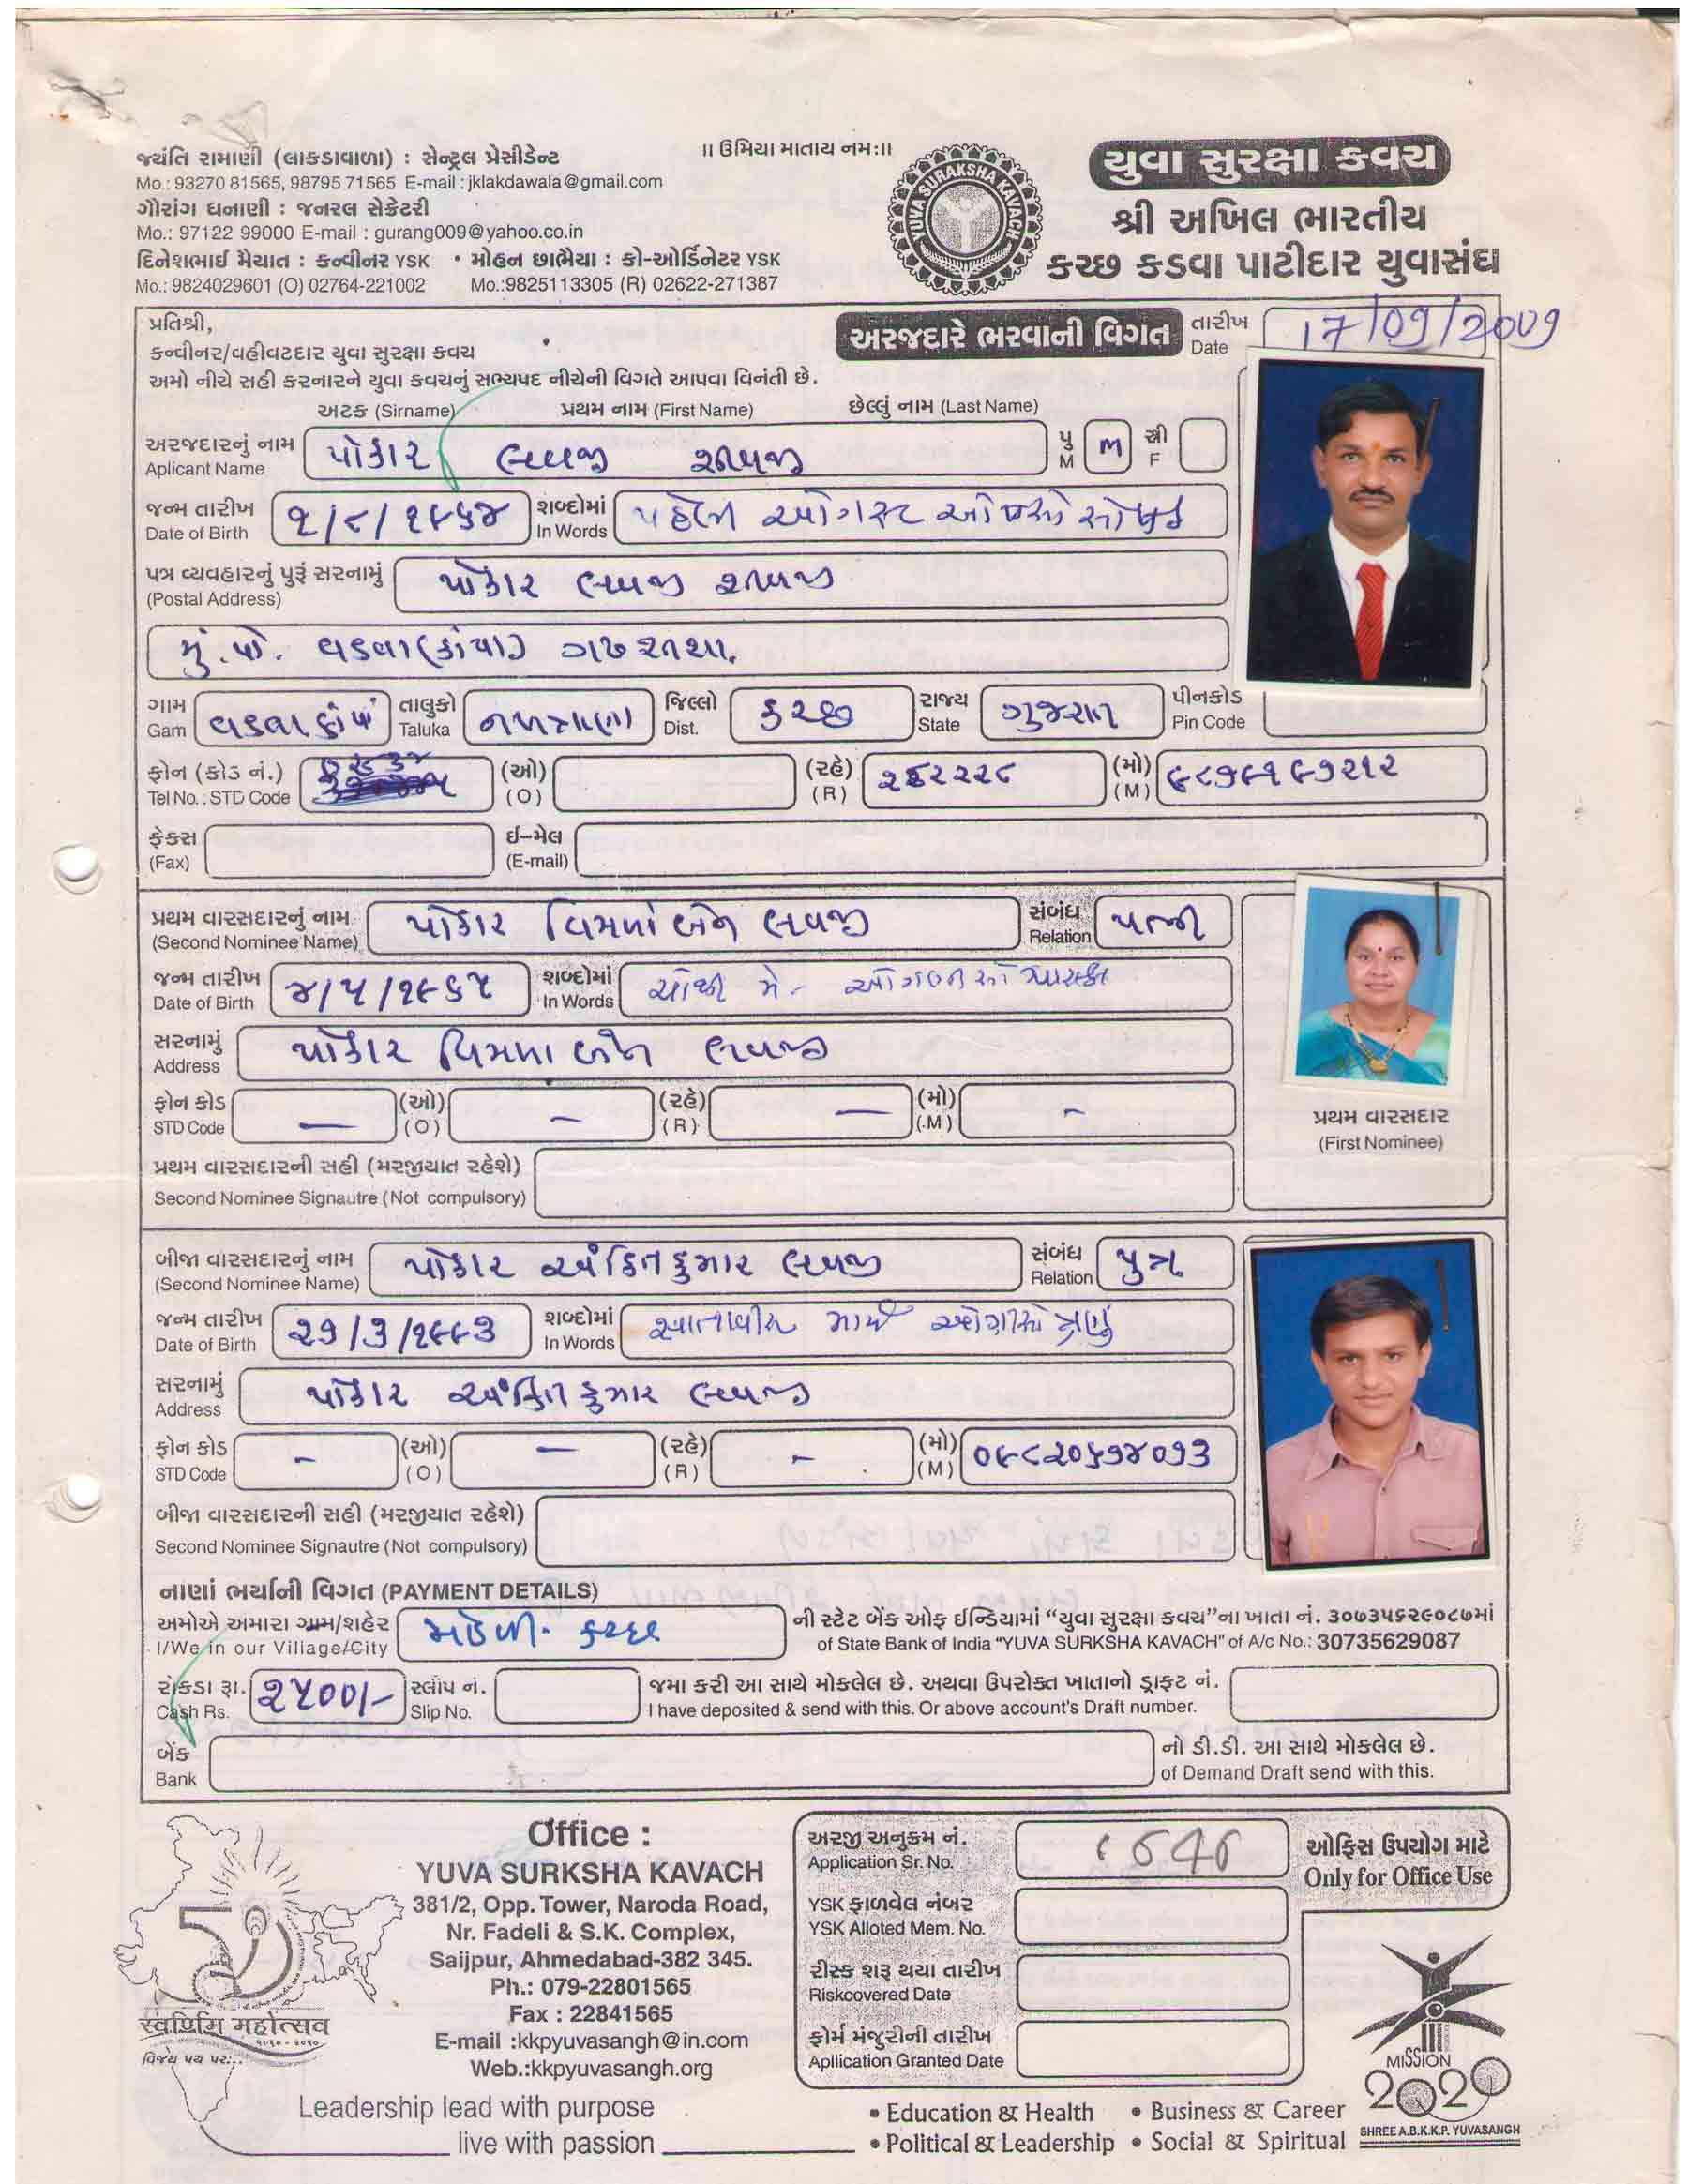 જયંતિ રામાણી (લાકડાવાળા) : સેન્ટ્રલ પ્રેસીડેન્ટ
Mo.: 93270 81565, 98795 71565 E-mail : jklakdawala@gmail.com
ગૌરાંગ ધનાણી : જનરલ સેક્રેટરી
Mo.: 97122 99000 E-mail : gurang009@yahoo.co.in
દિનેશભાઈ મૈયાત : કન્વીનર YSK • મોહન છાભૈયા : કો-ઓર્ડિનેટર YSK
Mo.: 9824029601 (O) 02764-221002 Mo.:9825113305 (R) 02622-271387
॥ ઉમિયા માતાય નમઃ॥
YUVA SURAKSHA KAVACH
યુવા સુરક્ષા કવચ
શ્રી અખિલ ભારતીય
કચ્છ કડવા પાટીદાર યુવાસંઘ
પ્રતિશ્રી,
કન્વીનર/વહીવટદાર યુવા સુરક્ષા કવચ
અમો નીચે સહી કરનારને યુવા કવચનું સભ્યપદ નીચેની વિગતે આપવા વિનંતી છે.
અરજદારે ભરવાની વિગત
તારીખ Date 17/09/2009
અટક (Sirname) પ્રથમ નામ (First Name) છેલ્લું નામ (Last Name)
અરજદારનું નામ Aplicant Name પોકાર લવજી શીવજી પુ M M સ્ત્રી F
જન્મ તારીખ Date of Birth ૧/૮/૧૯૬૪ શબ્દોમાં In Words પહેલી ઓગસ્ટ
પત્ર વ્યવહારનું પુરૂં સરનામું (Postal Address) પોકાર લવજી શીવજી
મું.પો. વડવા(કાંયા)
ગામ Gam વડવા કાંયા તાલુકો Taluka નખત્રાણા જિલ્લો Dist. કચ્છ રાજ્ય State ગુજરાત પીનકોડ Pin Code
ફોન (કોડ નં.) Tel No. : STD Code (ઓ) (O) (રહે) (R) ૨૬૨૨૨૮ (મો) (M) ૯૮૭૯૧૯૭૨૧૨
ફેક્સ (Fax) ઈ-મેલ (E-mail)
પ્રથમ વારસદારનું નામ (Second Nominee Name) પોકાર વિમળાબેન લવજી સંબંધ Relation પત્ની
જન્મ તારીખ Date of Birth ૪/૫/૧૯૬૫ શબ્દોમાં In Words ચોથી મે -
સરનામું Address પોકાર વિમળાબેન લવજી
ફોન કોડ STD Code — (ઓ) (O) — (રહે) (R) — (મો) (M) -
પ્રથમ વારસદારની સહી (મરજીયાત રહેશે)
Second Nominee Signautre (Not compulsory)
પ્રથમ વારસદાર
(First Nominee)
બીજા વારસદારનું નામ (Second Nominee Name) પોકાર અંકિતકુમાર લવજી સંબંધ Relation પુત્ર
જન્મ તારીખ Date of Birth ૨૭/૩/૧૯૯૩ શબ્દોમાં In Words સતાવીસ માર્ચ
સરનામું Address પોકાર અંકિતકુમાર લવજી
ફોન કોડ STD Code - (ઓ) (O) — (રહે) (R) - (મો) (M) ૦૯૮૨૦૬૭૪૦૧૩
બીજા વારસદારની સહી (મરજીયાત રહેશે)
Second Nominee Signautre (Not compulsory)
નાણાં ભર્યાની વિગત (PAYMENT DETAILS)
અમોએ અમારા ગ્રામ/શહેર મંડળી - કચ્છ ની સ્ટેટ બેંક ઓફ ઈન્ડિયામાં “યુવા સુરક્ષા કવચ”ના ખાતા નં. ૩૦૭૩૫૬૨૯૦૮૭માં
I/We in our Village/City of State Bank of India "YUVA SURKSHA KAVACH" of A/c No.: 30735629087
રોકડા રૂા. ૨૫૦૦/- સ્લીપ નં. જમા કરી આ સાથે મોકલેલ છે. અથવા ઉપરોક્ત ખાતાનો ડ્રાફ્ટ નં.
Cash Rs. Slip No. I have deposited & send with this. Or above account's Draft number.
બેંક નો ડી.ડી. આ સાથે મોકલેલ છે.
Bank of Demand Draft send with this.
स्वर्णिम महोत्सव
વિજય પથ પર...
Office :
YUVA SURKSHA KAVACH
381/2, Opp. Tower, Naroda Road,
Nr. Fadeli & S.K. Complex,
Saijpur, Ahmedabad-382 345.
Ph.: 079-22801565
Fax : 22841565
E-mail :kkpyuvasangh@in.com
Web.:kkpyuvasangh.org
અરજી અનુક્રમ નં.
Application Sr. No. 1646
YSK ફાળવેલ નંબર
YSK Alloted Mem. No.
રીસ્ક શરૂ થયા તારીખ
Riskcovered Date
ફોર્મ મંજુરીની તારીખ
Apllication Granted Date
ઓફિસ ઉપયોગ માટે
Only for Office Use
MISSION
2020
SHREE A.B.K.K.P. YUVASANGH
Leadership lead with purpose
live with passion
• Education & Health • Business & Career
• Political & Leadership • Social & Spiritual